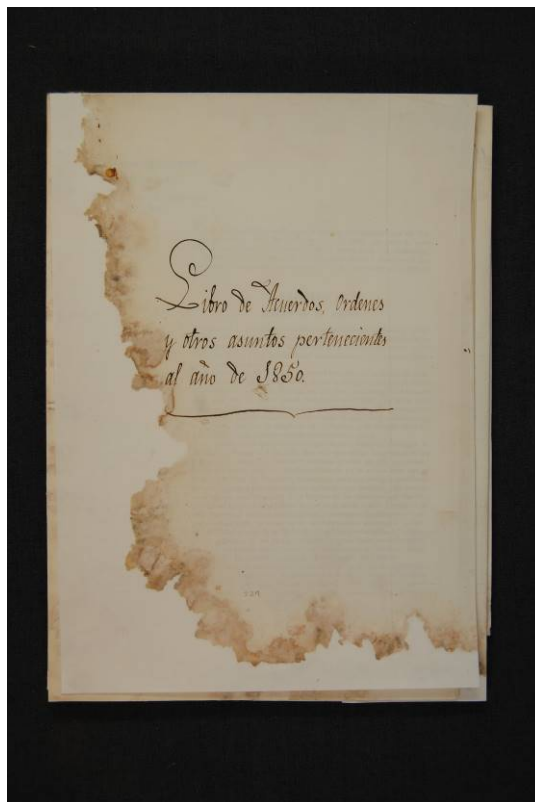 Libro de Acuerdos, Ordenes
y otros asuntos pertenecientes
al año de 1850.